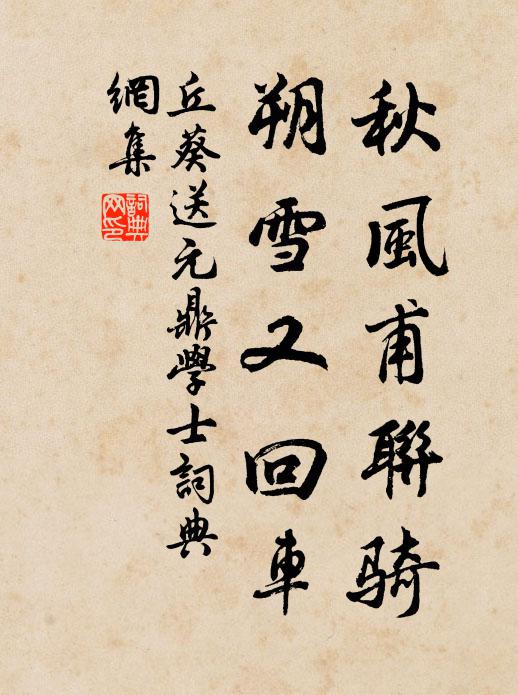 秋風甫聯騎
朔雪又回車
丘葵送元鼎學士詞典
網集
詞典
网印